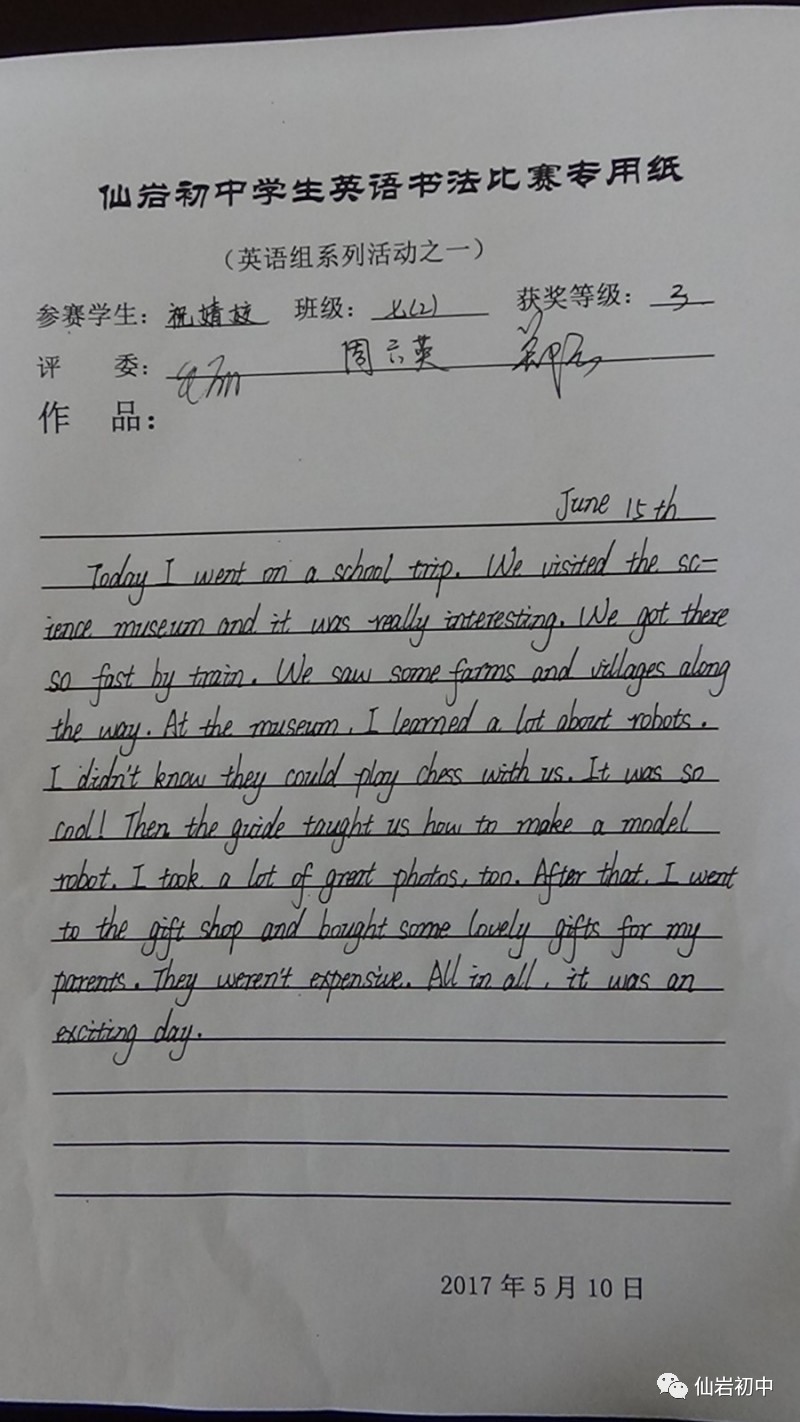 仙岩初中学生英语书法比赛专用纸
（英语组系列活动之一）
参赛学生：祝婧 班级：七(2) 获奖等级：三
评 委： 周云英
作 品：
June 15th
Today I went on a school trip. We visited the sc-
ience museum and it was really interesting. We got there
so fast by train. We saw some farms and villages along
the way. At the museum, I learned a lot about robots.
I didn't know they could play chess with us. It was so
cool! Then the guide taught us how to make a model
robot. I took a lot of great photos, too. After that, I went
to the gift shop and bought some lovely gifts for my
parents. They weren't expensive. All in all, it was an
exciting day.
2017 年 5 月 10 日
仙岩初中